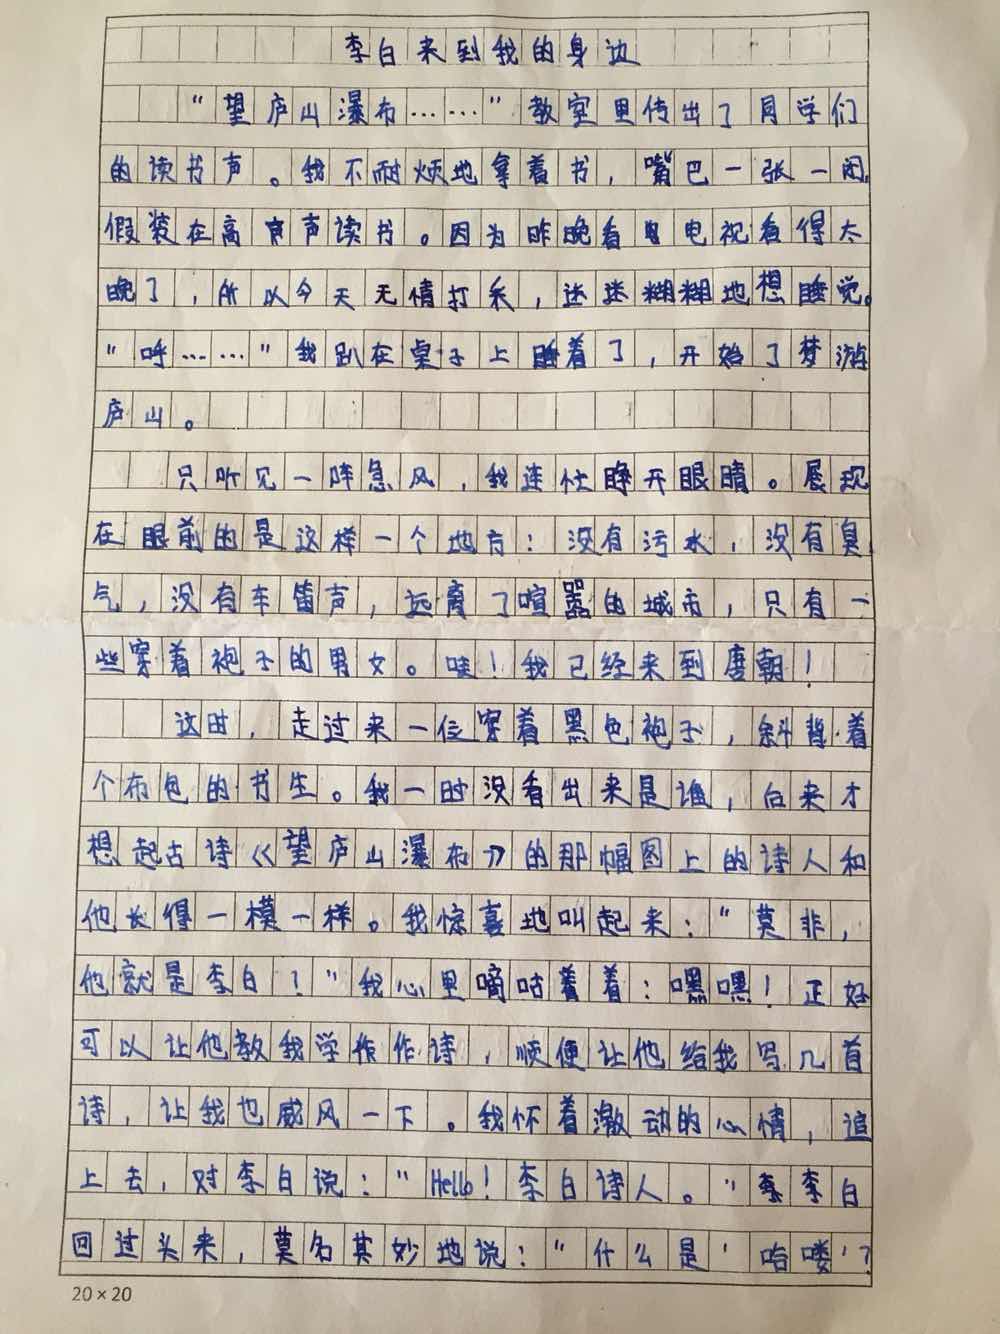 李白来到我的身边
“望庐山瀑布……”教室里传出了同学们
的读书声。我不耐烦地拿着书，嘴巴一张一闭，
假装在高声读书。因为昨晚看电视看得太
晚了，所以今天无情打采，迷迷糊糊地想睡觉。
“呼……”我趴在桌子上睡着了，开始了梦游
庐山。
只听见一阵急风，我连忙睁开眼睛。展现
在眼前的是这样一个地方：没有污水，没有臭
气，没有车笛声，远离了喧嚣的城市，只有一
些穿着袍子的男女。哇！我已经来到唐朝！
这时，走过来一位穿着黑色袍子，斜背着
个布包的书生。我一时没看出来是谁，后来才
想起古诗《望庐山瀑布》的那幅图上的诗人和
他长得一模一样。我惊喜地叫起来：“莫非，
他就是李白！”我心里嘀咕着着：嘿嘿！正好
可以让他教我学作作诗，顺便让他给我写几首
诗，让我也威风一下。我怀着激动的心情，追
上去，对李白说：“Hello！李白诗人。”李白
回过头来，莫名其妙地说：“什么是‘哈喽’？
20×20